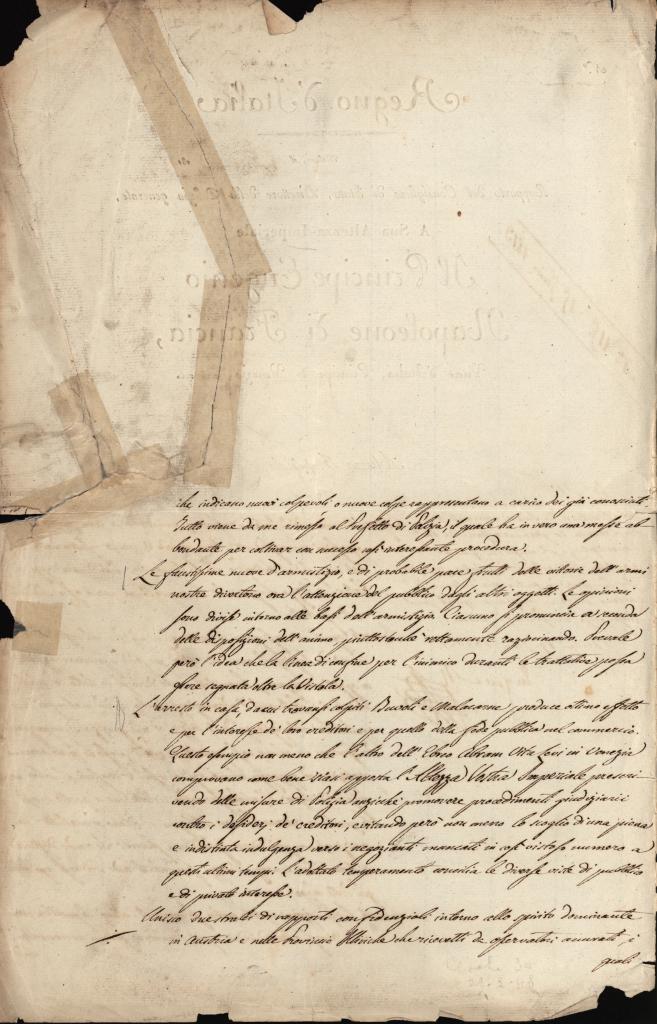 che indicano nuovi colpevoli o nuove colpe rappresentano a carico dei già conosciuti.
Tutto viene da me rimesso al Prefetto di Polizia, il quale ha in vero una messe ab-
bondante per coltivar con successo così interessante procedura.
Le faustissime nuove d'armistizio, e di probabile pace frutti delle vittorie dell'armi
nostre divertono ora l'attenzione del pubblico dagli altri oggetti. Le opinioni
sono divise intorno alle basi dell'armistizio. Ciascuno si pronuncia a seconda
delle disposizioni dell'animo, piuttosto che rettamente razioninando. Prevale
però l'idea che la linea di confine per l'inimico durante le trattative possa
essere segnata oltre la Vistola.
L'arresto in casa, da cui trovansi colpiti Buvoli e Malacarne produce ottimo effetto
e per l'interesse de' loro creditori e per quello della fede pubblica nel commercio.
Questo esempio non meno che l'altro dell'Ebreo Abram Vita Levi in Venezia
comprovano come bene siasi apposta l'Altezza Vostra Imperiale prescri-
vendo delle misure di Polizia anziché promovere procedimenti giudiziarii
contro i desiderj de' creditori, evitando però non meno lo scoglio di una piena
e indistinta indulgenza verso i negozianti mancati in così vistoso numero a
questi ultimi tempi. L'adottato temperamento concilia le diverse viste di pubblico
e di privato interesse.
Unisco due estratti di rapporti confidenziali intorno allo spirito dominante
in Austria e nelle Provincie Illiriche che ricevetti da osservatori accurati, i
quali